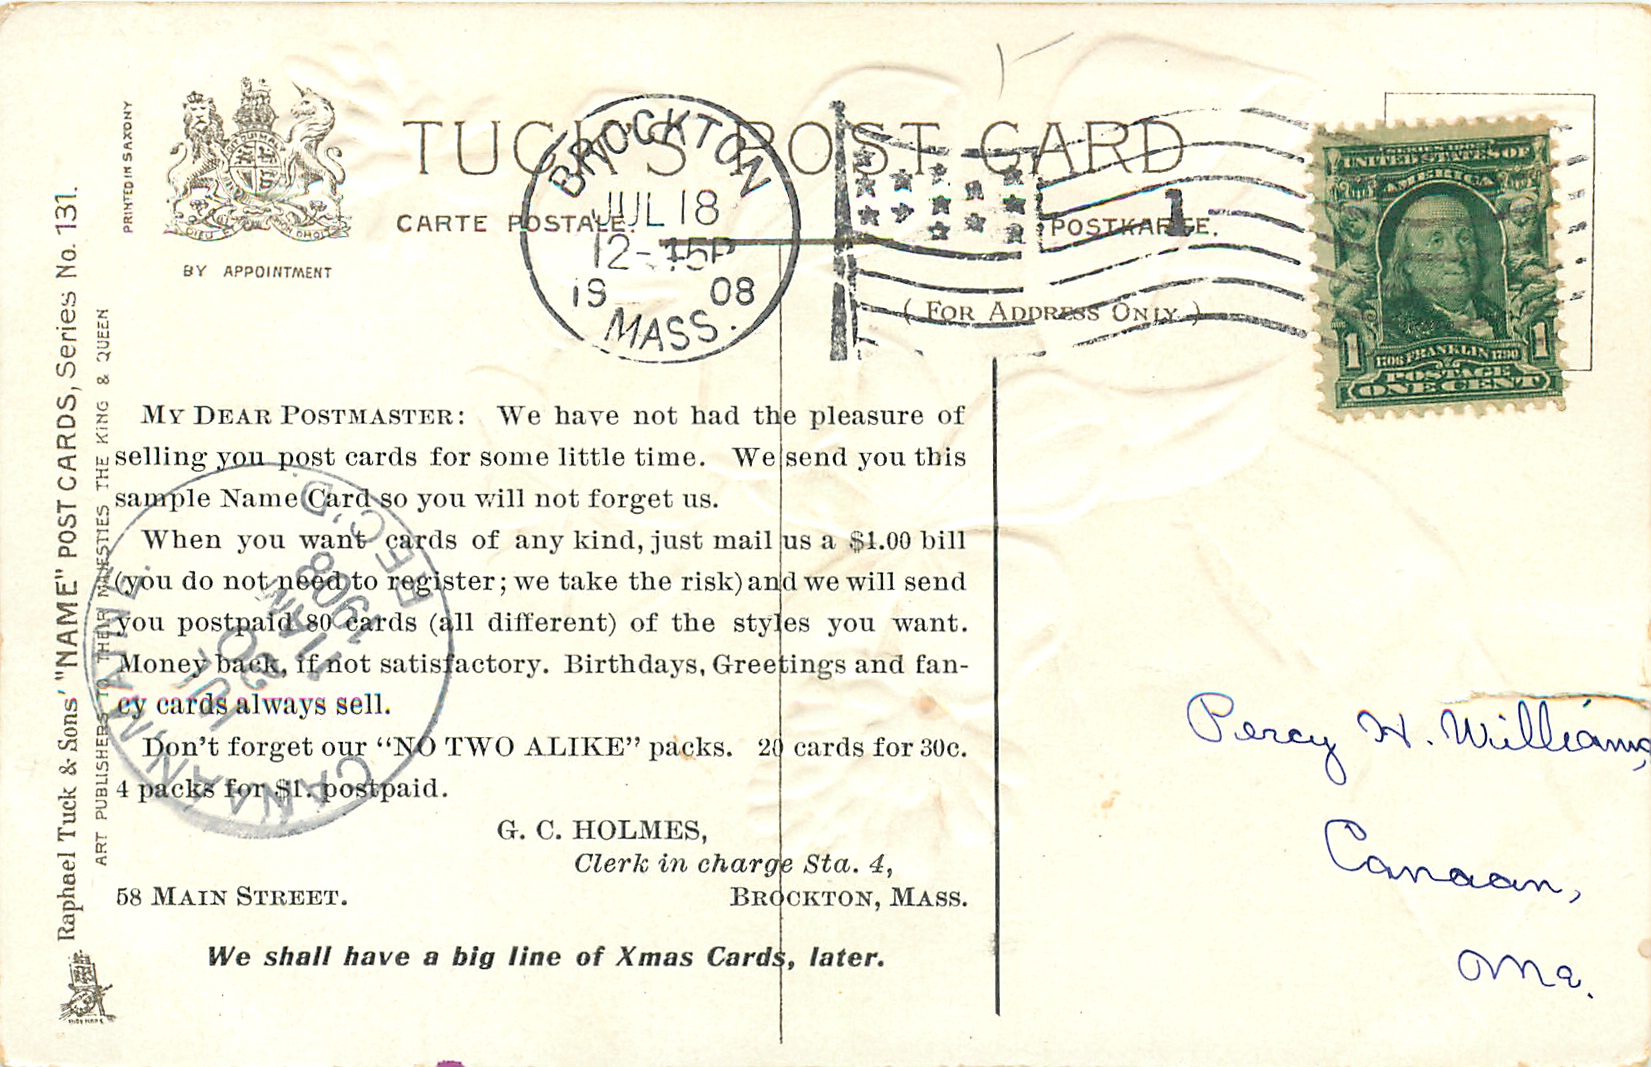 PRINTED IN SAXONY
Raphael Tuck & Sons' "NAME" POST CARDS, Series No. 131.
ART PUBLISHERS TO THEIR MAJESTIES THE KING & QUEEN
BY APPOINTMENT
TUCK'S POST CARD
CARTE POSTALE.
POSTKARTE.
( FOR ADDRESS ONLY. )
BROCKTON
JUL 18
12-
1908
MASS.
1
UNITED STATES OF
AMERICA
1 1
1706 FRANKLIN 1790
POSTAGE
ONE CENT
MY DEAR POSTMASTER: We have not had the pleasure of
selling you post cards for some little time. We send you this
sample Name Card so you will not forget us.
When you want cards of any kind, just mail us a $1.00 bill
(you do not need to register; we take the risk) and we will send
you postpaid 80 cards (all different) of the styles you want.
Money back, if not satisfactory. Birthdays, Greetings and fan-
cy cards always sell.
Don't forget our "NO TWO ALIKE" packs. 20 cards for 30c.
4 packs for $1. postpaid.
G. C. HOLMES,
Clerk in charge Sta. 4,
58 MAIN STREET. BROCKTON, MASS.
We shall have a big line of Xmas Cards, later.
CANAAN, MAINE.
JUL
20
11 AM
1908
REC'D.
Percy H. Williams,
Canaan,
Me.